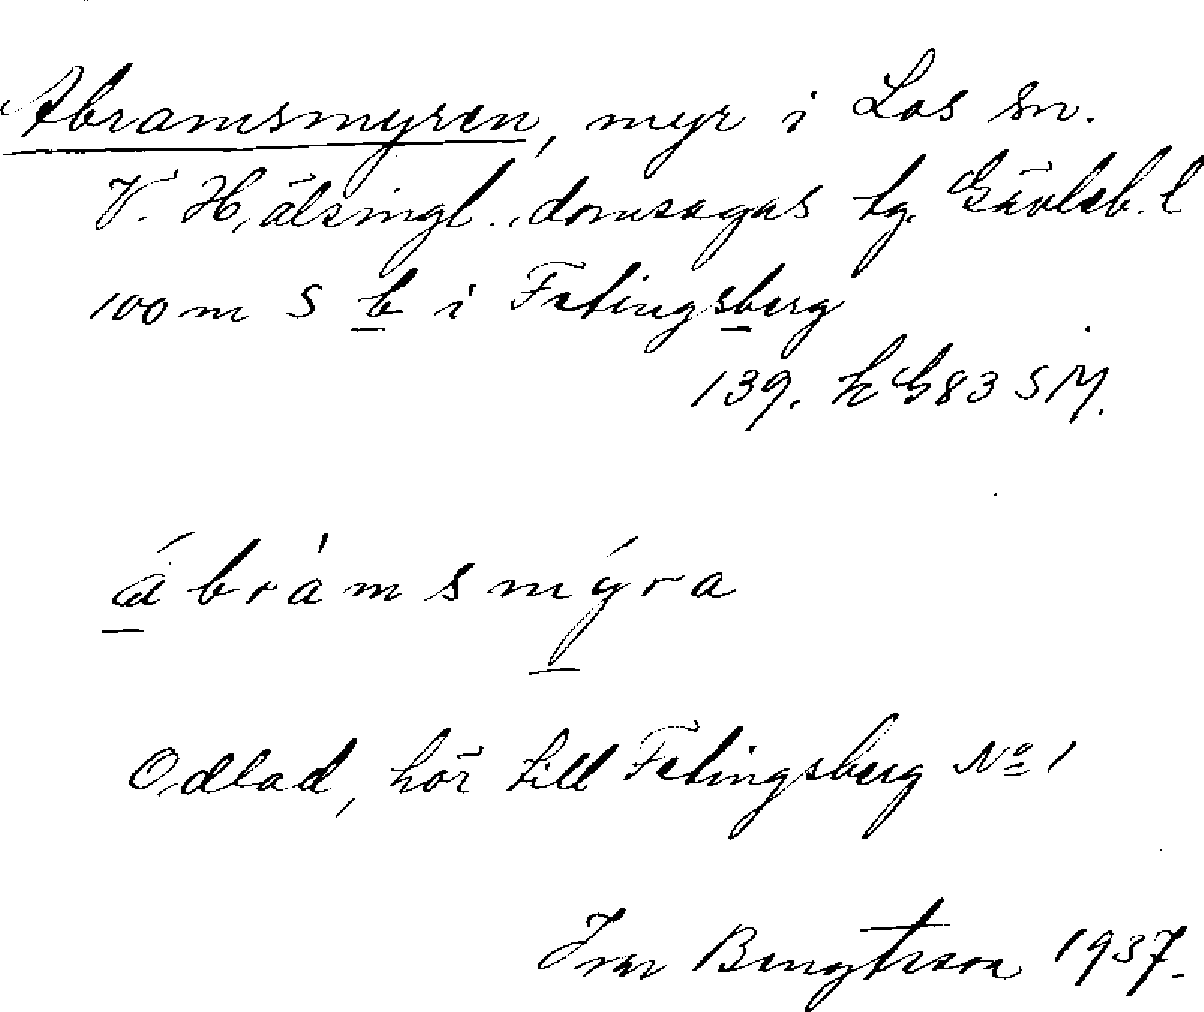 Abramsmyren, myr i Los sn.
V. Hälsingl. domsagas tg. Gävleb. l
100 m S b i Fetingsberg
139. SM.
ábràmsmýra
Odlad, hör till Fetingsberg No 1
Ivar Bengtsson 1937.